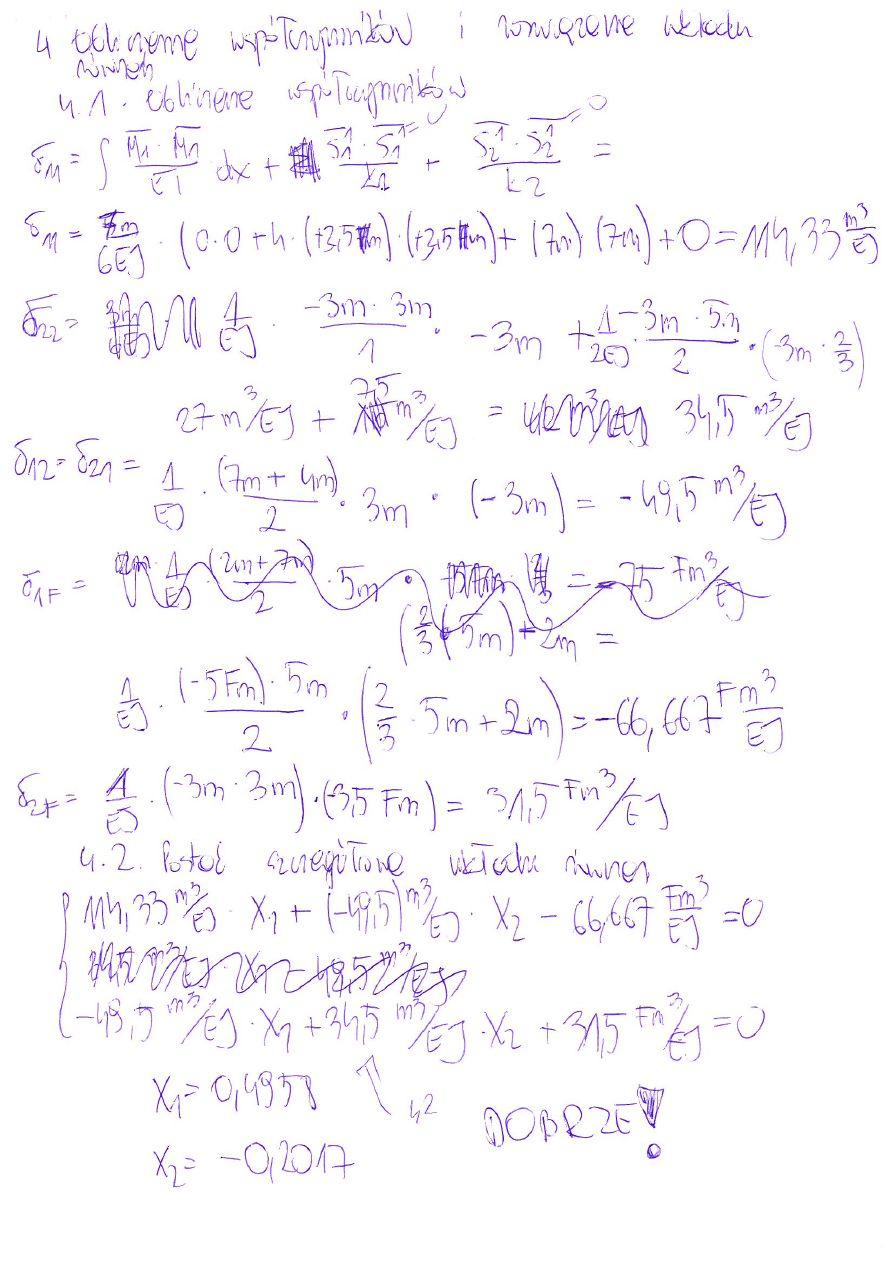 4 Obliczenie współczynników i rozwiązanie układu
równań
4.1. Obliczenie współczynników
δ11 = ∫ M̅1·M̅1/EI dx + S̅1¹·S̅1¹/k1 → 0 + S̅2¹·S̅2¹/k2 → 0 =
δ11 = 7m/6EJ · (0·0 + 4·(+3,5m)·(+3,5m) + (7m)·(7m)) + 0 = 114,33 m³/EJ
δ22 = 1/EJ · -3m·3m/1 · -3m + 1/2EJ · -3m·5m/2 · (-3m·2/3)
27 m³/EJ + 7,5 m³/EJ = 34,5 m³/EJ
δ12 = δ21 = 1/EJ · (7m+4m)/2 · 3m · (-3m) = -49,5 m³/EJ
δ1F = 1/EJ · (2m+7m)/2 · 5m · = -75 Fm³/EJ
(2/3·5m)+2m =
1/EJ · (-5Fm)·5m/2 · (2/3·5m+2m) = -66,667 Fm³/EJ
δ2F = 1/EJ · (-3m·3m)·(-3,5Fm) = 31,5 Fm³/EJ
4.2. Postać szczegółowa układu równań
114,33 m³/EJ · X1 + (-49,5) m³/EJ · X2 - 66,667 Fm³/EJ = 0
-49,5 m³/EJ · X1 + 34,5 m³/EJ · X2 + 31,5 Fm³/EJ = 0
X1 = 0,4958
4.2 DOBRZE!
X2 = -0,2017